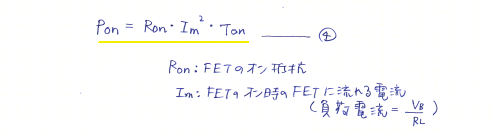 Pon = Ron・Im²・Ton ——— ④
Ron : FETのオン抵抗
Im : FETのオン時のFETに流れる電流
(負荷電流 = VB/RL)